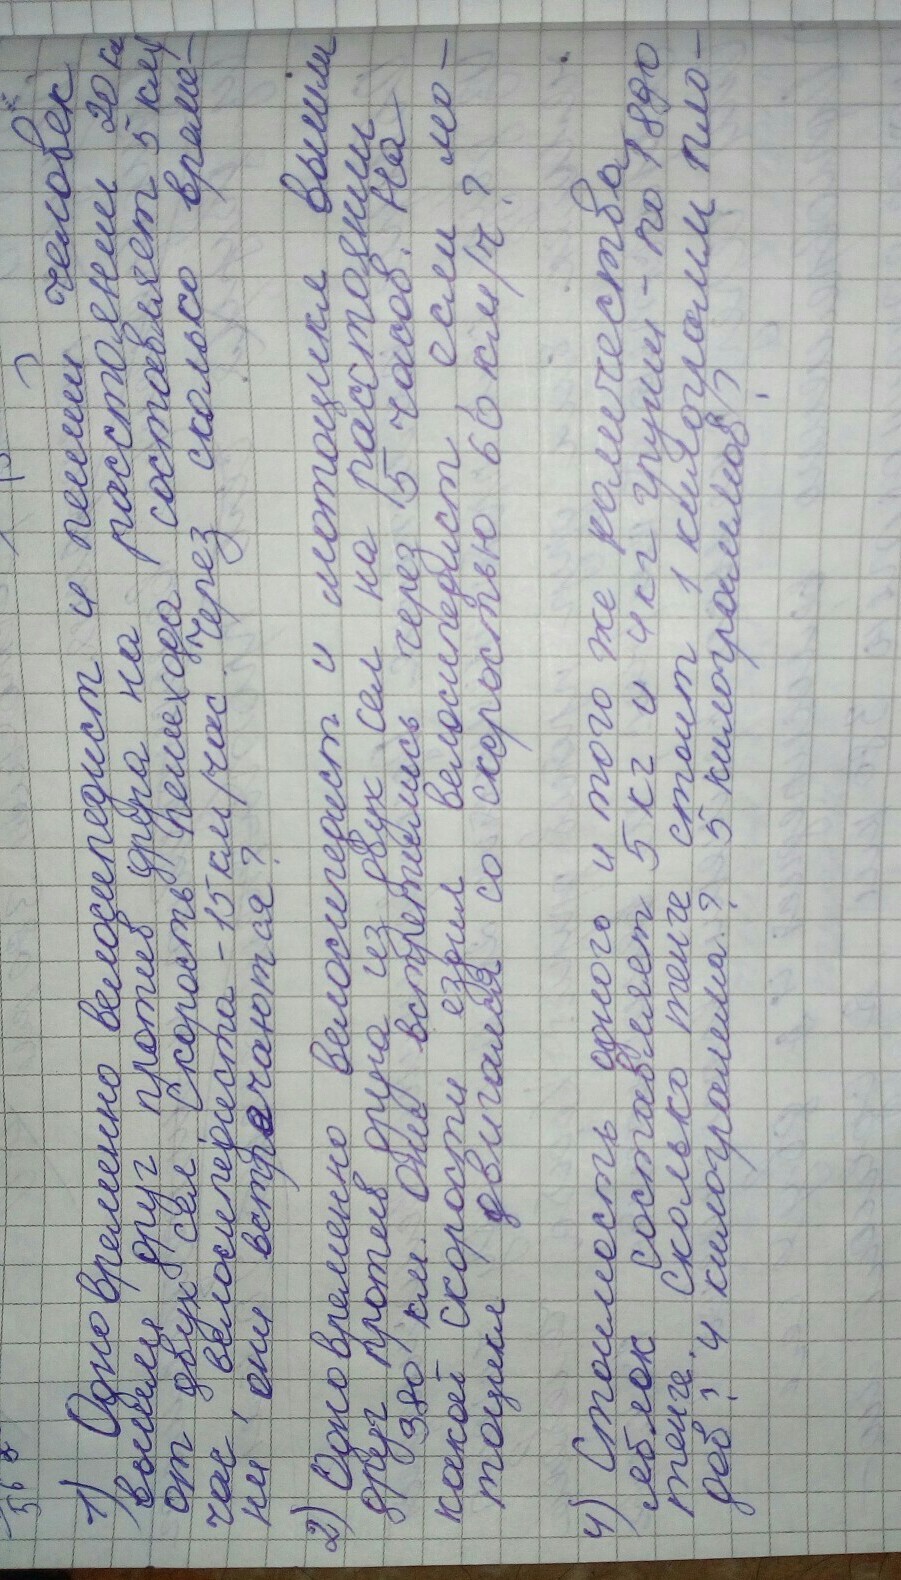 1) Одновременно велосипедист и пеший человек
вышли друг против друга на расстоянии 20 км
от двух сел. Скорость пешехода составляет 5 км/
час, велосипедиста - 15 км/час. Через сколько време-
ни они встречаются?
2) Одновременно велосипедист и мотоцикл вышли
друг против друга из двух сел на расстоянии
380 км. Они встретились через 5 часов. На
какой скорости ездил велосипедист если мо-
тоцикл двигался со скоростью 60 км/ч?
4) Стоимость одного и того же количества
яблок составляет 5 кг и 4 кг груши - по 1890
тенге. Сколько тенге стоит 1 килограмм пло-
дов? 4 килограмма? 5 килограммов?